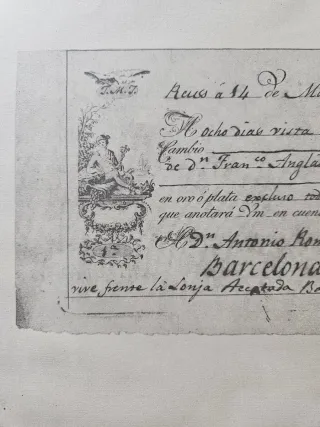 J.M.D.
Reus á 14 de Ma
A ocho dias vista
Cambio
de dn. Franco. Angla
en oro ó plata excluso tod
que anotará Vm. en cuen
A Dn. Antonio Rom
Barcelona
vive frente la Lonja Aceptada Ba